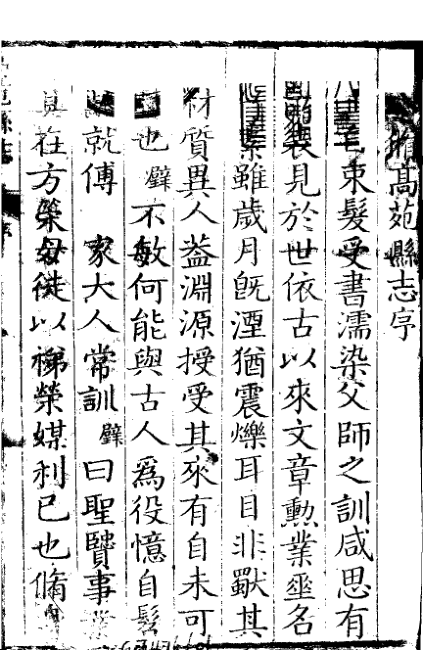 脩高苑縣志序
毛束髮受書濡染父師之訓咸思有
表見於世依古以來文章勲業垂名
雖歲月旣湮猶震爍耳目非獸其
材質異人葢淵源授受其來有自未可
也璧不敏何能與古人爲役憶自髫
就傅家大人常訓璧曰聖賢事業
具在方䇿毋徒以梯榮媒利已也脩